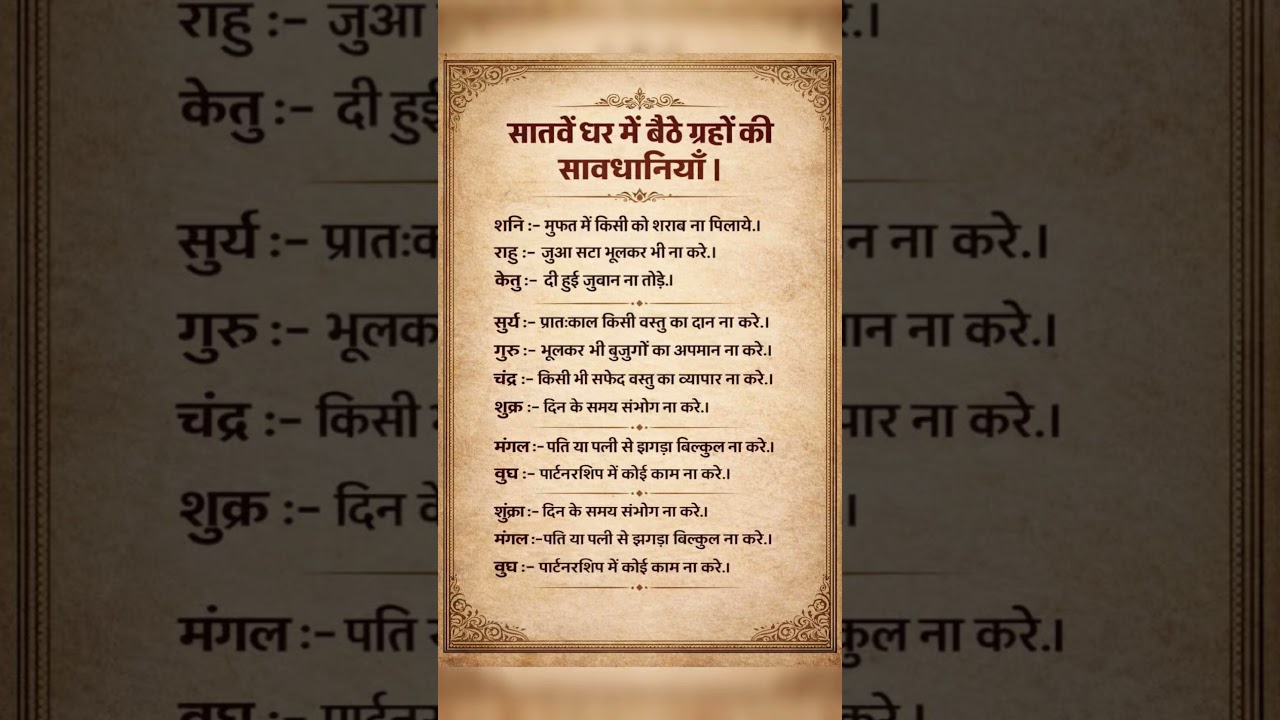 सातवें धर में बैठे ग्रहों की
सावधानियाँ ।
शनि :- मुफत में किसी को शराब ना पिलाये.।
राहु :- जुआ सटा भूलकर भी ना करे.।
केतु :- दी हुई जुबान ना तोड़े.।
सुर्य :- प्रातःकाल किसी वस्तु का दान ना करे.।
गुरु :- भूलकर भी बुज़ुगों का अपमान ना करे.।
चंद्र :- किसी भी सफेद वस्तु का व्यापार ना करे.।
शुक्र :- दिन के समय संभोग ना करे.।
मंगल :- पति या पली से झगड़ा बिल्कुल ना करे.।
वुघ :- पार्टनरशिप में कोई काम ना करे.।
शुंक्रा :- दिन के समय संभोग ना करे.।
मंगल :-पति या पली से झगड़ा बिल्कुल ना करे.।
वुघ :- पार्टनरशिप में कोई काम ना करे.।